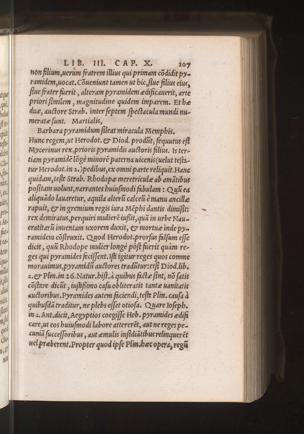 LIB. III. CAP. X. 207
non filium, uerùm fratrem illius qui primam cõdidit py-
ramidem, uocat. Cõueniunt tamen ut hic, siue filius eius,
siue frater fuerit, alteram pyramidem ædificauerit, arte
priori similem, magnitudine quidem imparem. Et hæ
duæ, auctore Strab. inter septem spectacula mundi nu-
meratæ sunt. Martialis,
Barbara pyramidum sileat miracula Memphis.
Hunc regem, ut Herodot. & Diod. prodũt, sequutus est
Mycerinus rex prioris pyramidis auctoris filius. Is ter-
tiam pyramidẽ lõgè minorẽ paterna uicens (uelut testa-
tur Herodot. in 2.) pedibus, ex omni parte reliquit. Hanc
quidam, teste Strab. Rhodopæ meretriculæ ab amãtibus
positam uolunt, narrantes huiusmodi fabulam: Quũ ea
aliquãdo lauaretur, aquila alterũ calceũ è manu ancillæ
rapuit, & in gremium regis iura Mẽphi dantis dimisit:
rex demiratus, perquiri mulierẽ iussit, quã in urbe Nau-
cratitarũ inuentam uxorem duxit, & mortuæ inde py-
ramidem cõstruxit. Quod Herodot. prorsus falsum esse
dicit, quũ Rhodope mulier longè pòst fuerit quàm re-
ges qui pyramides fecissent. Isti igitur reges quos comme
morauimus, pyramidũ auctores tradũtur: test Diod. lib.
2. & Plin. in 36. Natur. hist. à quibus fictæ sint, nõ satis
cõstare dicũt, iustissimo casu obliteratis tantæ uanitatis
auctoribus. Pyramides autem faciendi, teste Plin. causa à
quibusdã traditur, ne plebs esset otiosa. Quare Ioseph.
in 2. Ant. dicit, Aegyptios coegisse Heb. pyramides ædifi
care, ut eos huiusmodi labore attererẽt, aut ne reges pe-
cuniã successoribus, aut æmulis insidiãtibus relinquerẽt
uel præberent. Propter quod ipse Plin. hæc opera, regũ